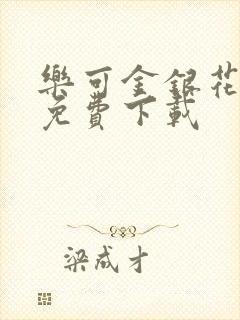 樂可金銀花
免費下載
梁成才